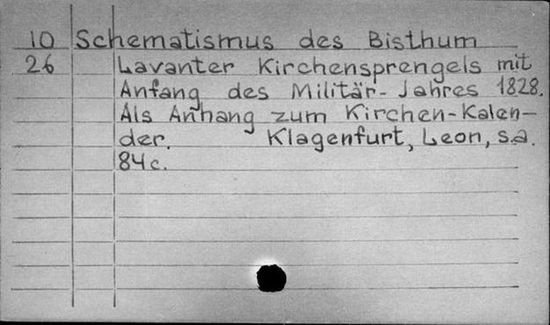 10 Schematismus des Bisthum
26 Lavanter Kirchensprengels mit
Anfang des Militär-Jahres 1828.
Als Anhang zum Kirchen-Kalen-
der. Klagenfurt, Leon, s.a.
84 c.